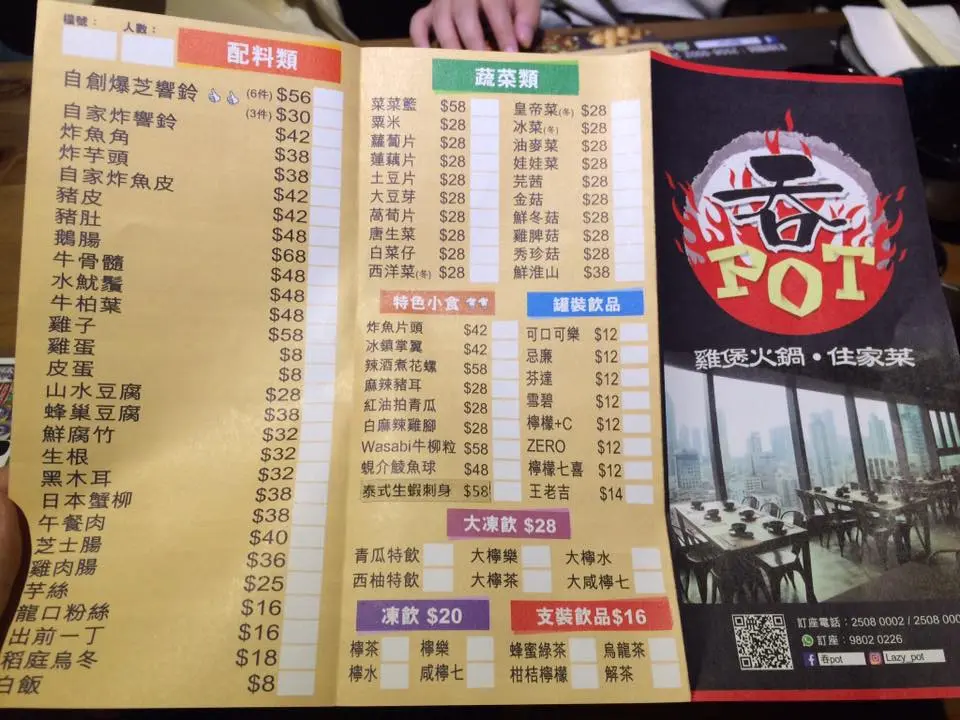 檯號： 人數：
配料類
自創爆芝響鈴 (6件) $56
自家炸響鈴 (3件) $30
炸魚角 $42
炸芋頭 $38
自家炸魚皮 $38
豬皮 $42
豬肚 $42
鵝腸 $48
牛骨髓 $68
水魷鬚 $48
牛柏葉 $48
雞子 $58
雞蛋 $8
皮蛋 $8
山水豆腐 $28
蜂巢豆腐 $38
鮮腐竹 $32
生根 $32
黑木耳 $32
日本蟹柳 $38
午餐肉 $38
芝士腸 $40
雞肉腸 $36
芋絲 $25
龍口粉絲 $16
出前一丁 $16
稻庭烏冬 $18
白飯 $8
蔬菜類
菜菜籃 $58
粟米 $28
蘿蔔片 $28
蓮藕片 $28
土豆片 $28
大豆芽 $28
萵荀片 $28
唐生菜 $28
白菜仔 $28
西洋菜(冬) $28
皇帝菜(冬) $28
冰菜(冬) $28
油麥菜 $28
娃娃菜 $28
芫茜 $28
金菇 $28
鮮冬菇 $28
雞脾菇 $28
秀珍菇 $28
鮮淮山 $38
特色小食
炸魚片頭 $42
冰鎮掌翼 $42
辣酒煮花螺 $58
麻辣豬耳 $28
紅油拍青瓜 $28
白麻辣雞腳 $28
Wasabi牛柳粒 $58
蜆介鯪魚球 $48
泰式生蝦刺身 $58
罐裝飲品
可口可樂 $12
忌廉 $12
芬達 $12
雪碧 $12
檸檬+C $12
ZERO $12
檸檬七喜 $12
王老吉 $14
大凍飲 $28
青瓜特飲 大檸樂 大檸水
西柚特飲 大檸茶 大咸檸七
凍飲 $20
檸茶 檸樂
檸水 咸檸七
支裝飲品$16
蜂蜜綠茶 烏龍茶
柑桔檸檬 解茶
吞
POT
雞煲火鍋・住家菜
訂座電話：2508 0002 / 2508 000
訂座：9802 0226
吞pot Lazy_pot